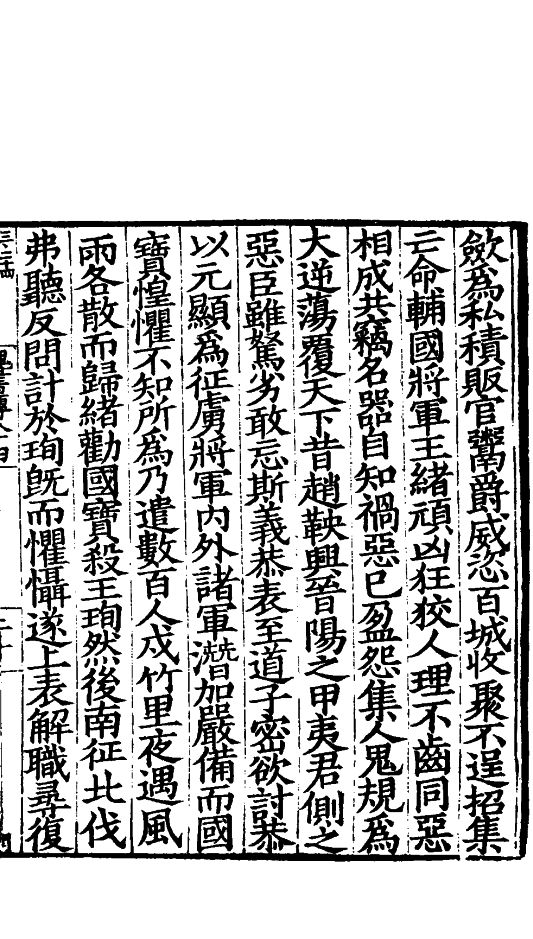 歛為私積販官鬻爵威恣百城收聚不逞招集
亡命輔國將軍王緒頑凶狂狡人理不齒同惡
相成共竊名器自知禍惡已盈怨集人鬼規為
大逆蕩覆天下昔趙鞅興晉陽之甲夷君側之
惡臣雖駑劣敢忘斯義恭表至道子密欲討恭
以元顯為征虜將軍內外諸軍濳加嚴備而國
寶惶懼不知所為乃遣數百人戍竹里夜遇風
雨各散而歸緒勸國寶殺王珣然後南征北伐
弗聽反問計於珣旣而懼懾遂上表解職尋復